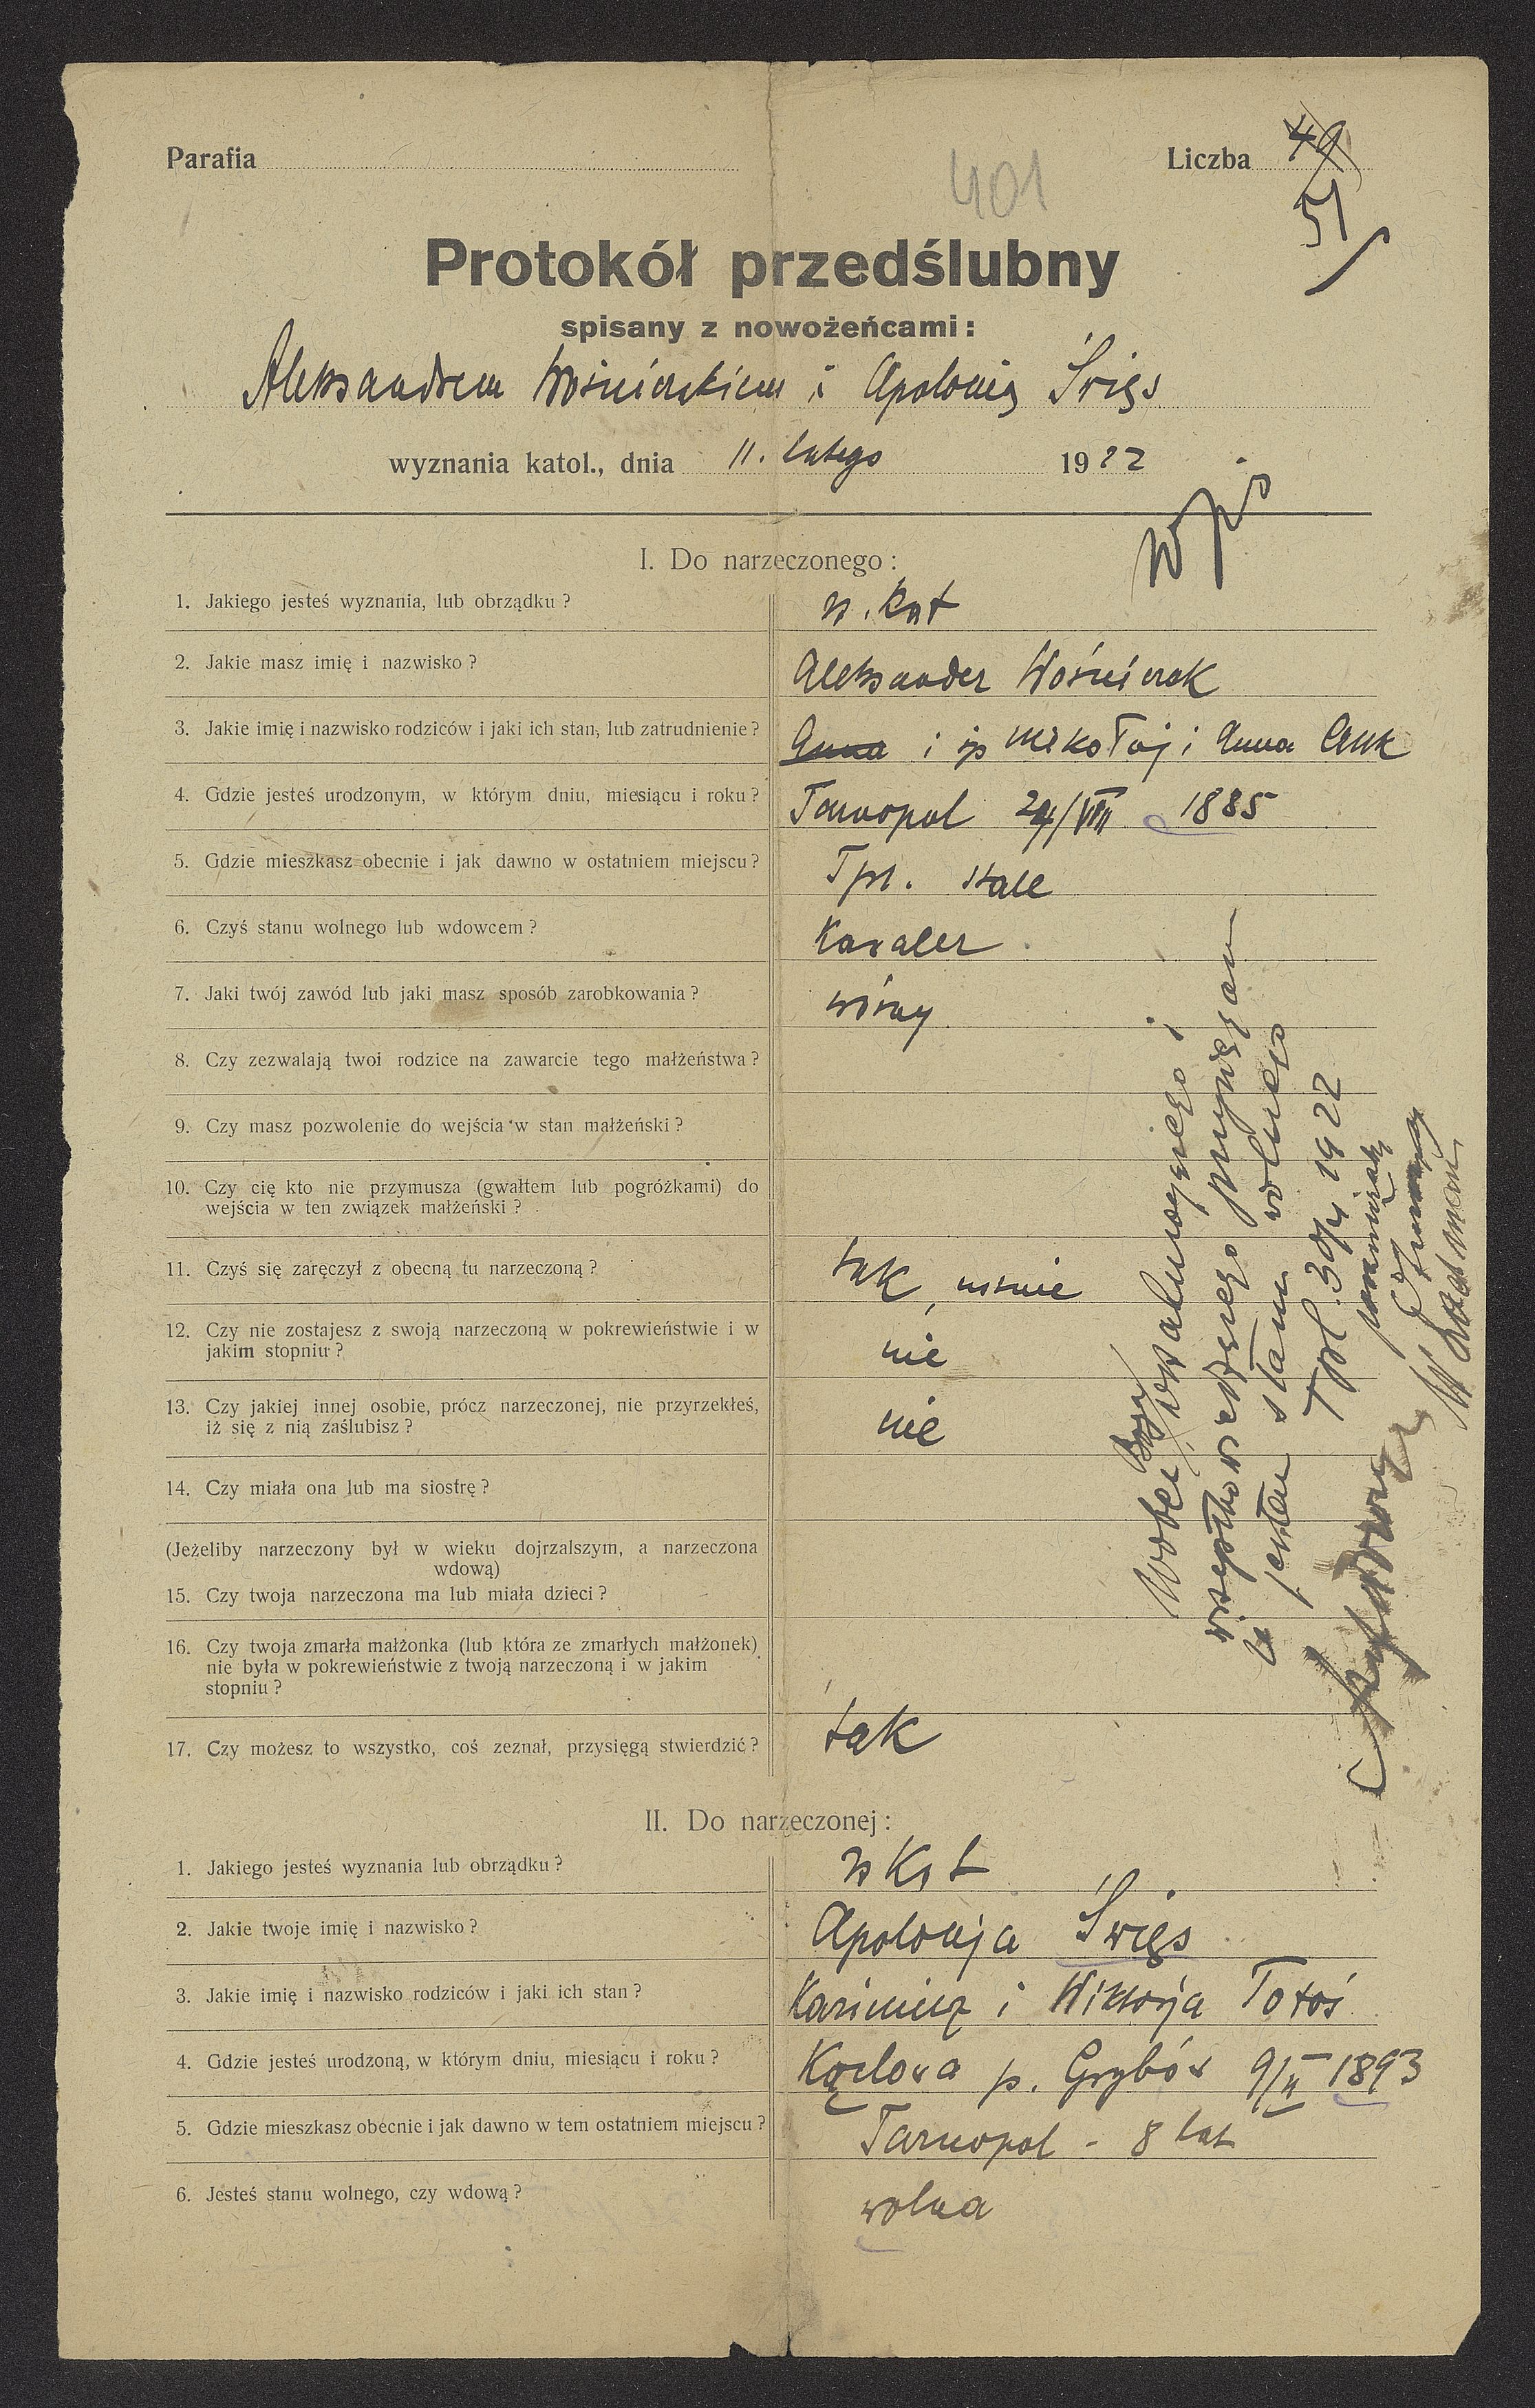 Parafia
Liczba 49
51
401
Protokół przedślubny
spisany z nowożeńcami:
Aleksandrem Wośnierskiem i Apolonią Święs
wyznania katol., dnia 11. lutego 1922
I. Do narzeczonego:
1. Jakiego jesteś wyznania, lub obrządku? rz. kat
2. Jakie masz imię i nazwisko? Aleksander Wośnierek
3. Jakie imię i nazwisko rodziców i jaki ich stan, lub zatrudnienie? Anna i śp Mikołaj i Anna
4. Gdzie jesteś urodzonym, w którym dniu, miesiącu i roku? Tarnopol 24/VIII 1885
5. Gdzie mieszkasz obecnie i jak dawno w ostatniem miejscu? Tpl. stale
6. Czyś stanu wolnego lub wdowcem? Kawaler
7. Jaki twój zawód lub jaki masz sposób zarobkowania? woźny
8. Czy zezwalają twoi rodzice na zawarcie tego małżeństwa?
9. Czy masz pozwolenie do wejścia w stan małżeński?
10. Czy cię kto nie przymusza (gwałtem lub pogróżkami) do
wejścia w ten związek małżeński?
11. Czyś się zaręczył z obecną tu narzeczoną? tak, ustnie
12. Czy nie zostajesz z swoją narzeczoną w pokrewieństwie i w
jakim stopniu? nie
13. Czy jakiej innej osobie, prócz narzeczonej, nie przyrzekłeś,
iż się z nią zaślubisz? nie
14. Czy miała ona lub ma siostrę?
(Jeżeliby narzeczony był w wieku dojrzalszym, a narzeczona
wdową)
15. Czy twoja narzeczona ma lub miała dzieci?
16. Czy twoja zmarła małżonka (lub która ze zmarłych małżonek)
nie była w pokrewieństwie z twoją narzeczoną i w jakim
stopniu?
17. Czy możesz to wszystko, coś zeznał, przysięgą stwierdzić? tak
Wobec Boga wszechmogącego i
wszystkowiedzącego przysięgam
że jestem stanu wolnego
Tpl. 30/4 1922
II. Do narzeczonej:
1. Jakiego jesteś wyznania lub obrządku? rz kat
2. Jakie twoje imię i nazwisko? Apolonja Święs
3. Jakie imię i nazwisko rodziców i jaki ich stan? Kazimierz i Wiktorja Totoś
4. Gdzie jesteś urodzoną, w którym dniu, miesiącu i roku? Kąclowa p. Grybów 9/II 1893
5. Gdzie mieszkasz obecnie i jak dawno w tem ostatniem miejscu? Tarnopol - 8 lat
6. Jesteś stanu wolnego, czy wdową? wolna